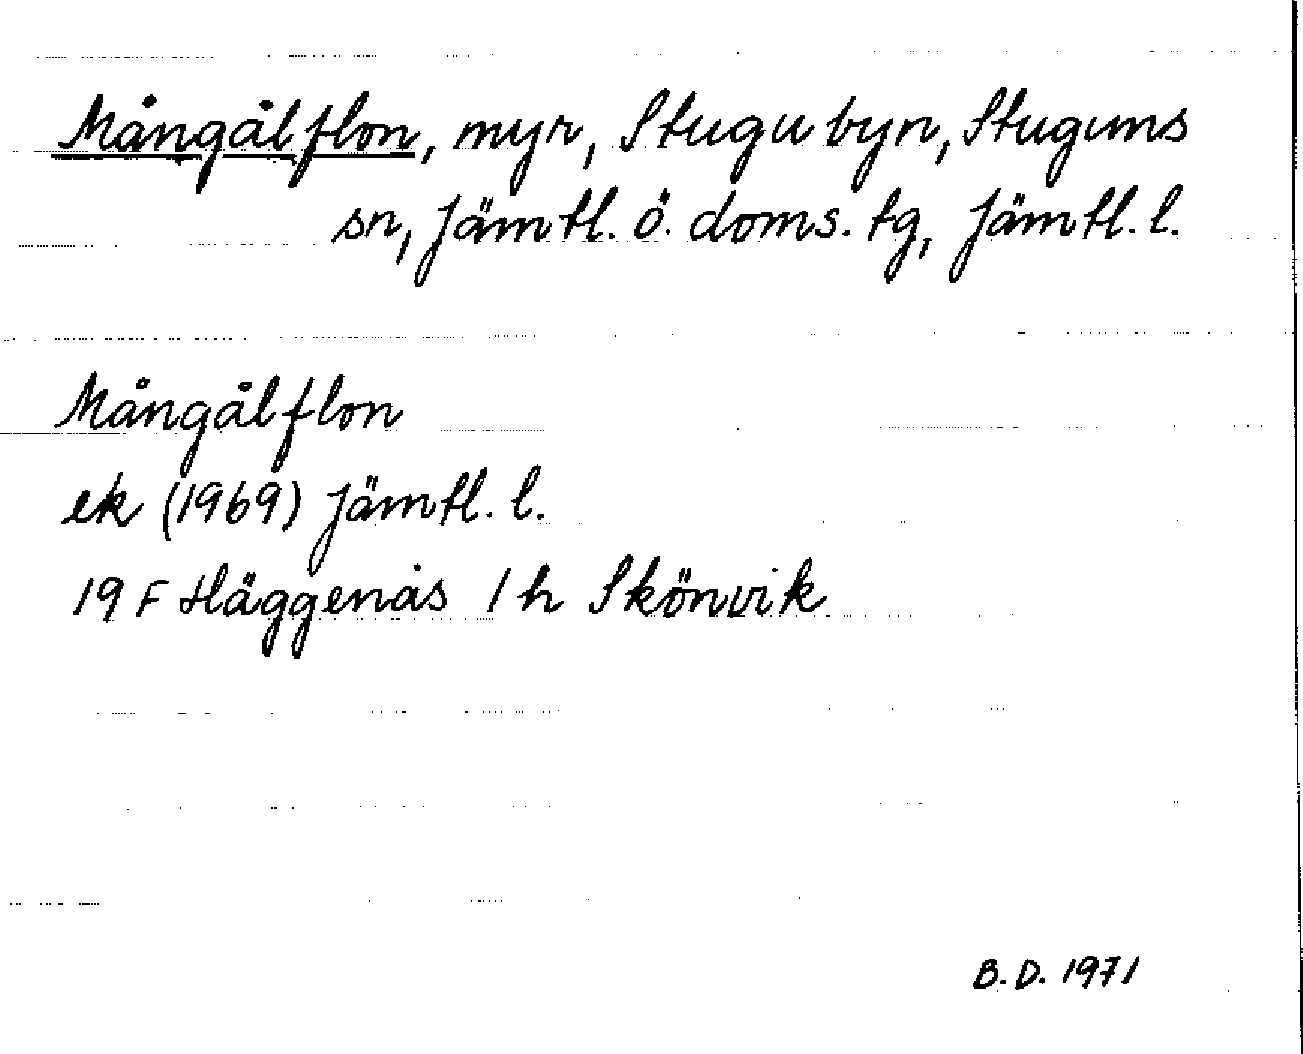 Mångålflon, myr, Stugubyn, Stuguns
sn, Jämtl. ö. doms. tg, Jämtl. l.
Mångålflon
ek (1969) Jämtl. l.
19 F Häggenås 1 h Skönvik
B. D. 1971